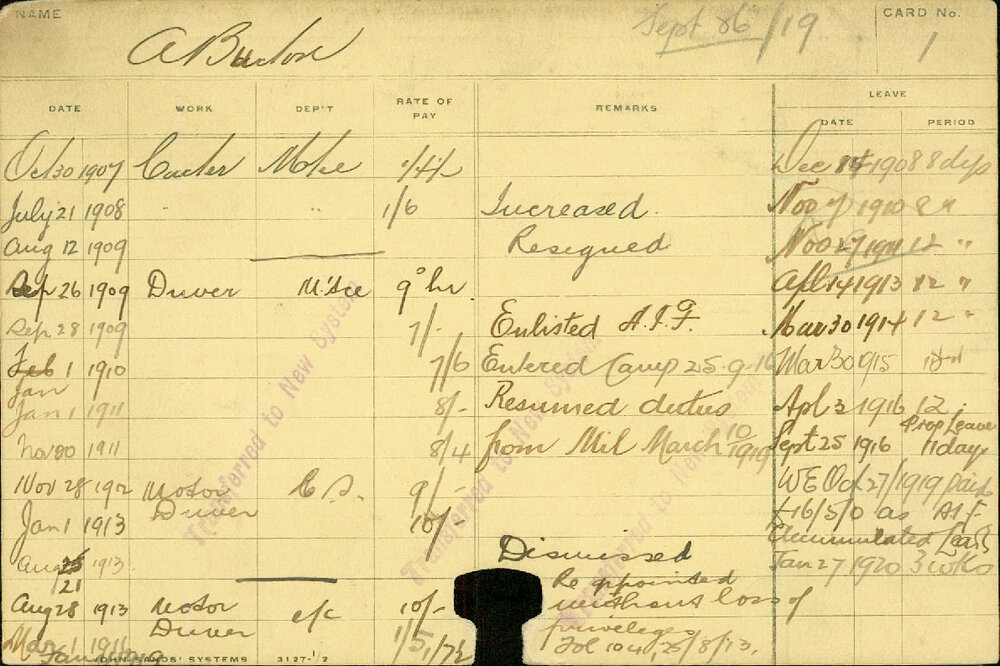 NAME
A Burton
Sept 26th/19
CARD No.
1
DATE WORK DEP'T RATE OF PAY REMARKS LEAVE
DATE PERIOD
Oct 30 1907 Carter M'tce 1/4/- Dec 1908 8 days
July 21 1908 " " 1/6 Increased Nov 7 1910 8 "
Aug 12 1909 Resigned Nov 27 1911 12 "
Sep 26 1909 Driver M'tce 9d hr Apl 14 1913 12 "
Sep 28 1909 7/- Enlisted A.I.F. Mar 30 1914 12 "
Feb 1 1910 7/6 Entered Camp 25-9-16 Mar 30 1915
Jan
Jan 1 1911 8/- Resumed duties Apl 3 1916 12
Prop Leave
Nov 30 1911 8/4 from Mil March 10/1919 Sept 25 1916 11 days
Nov 28 1912 Motor Driver C.D. 9/- WE Oct 27/1919 paid
Jan 1 1913 10/- £16/5/0 as AIF
Accumulated Leave
Aug 25 1913 Dismissed Jan 27 1920 3 wks
21
Aug 28 1913 Motor Driver e/c 10/- Re appointed
without loss of
privileges
Mar 1 1/5 1/7½ Fol 104, 25/8/13.
Transferred to New System
Transferred to New System
Transferred to New System
JOHN SANDS' SYSTEMS 3127-1/2